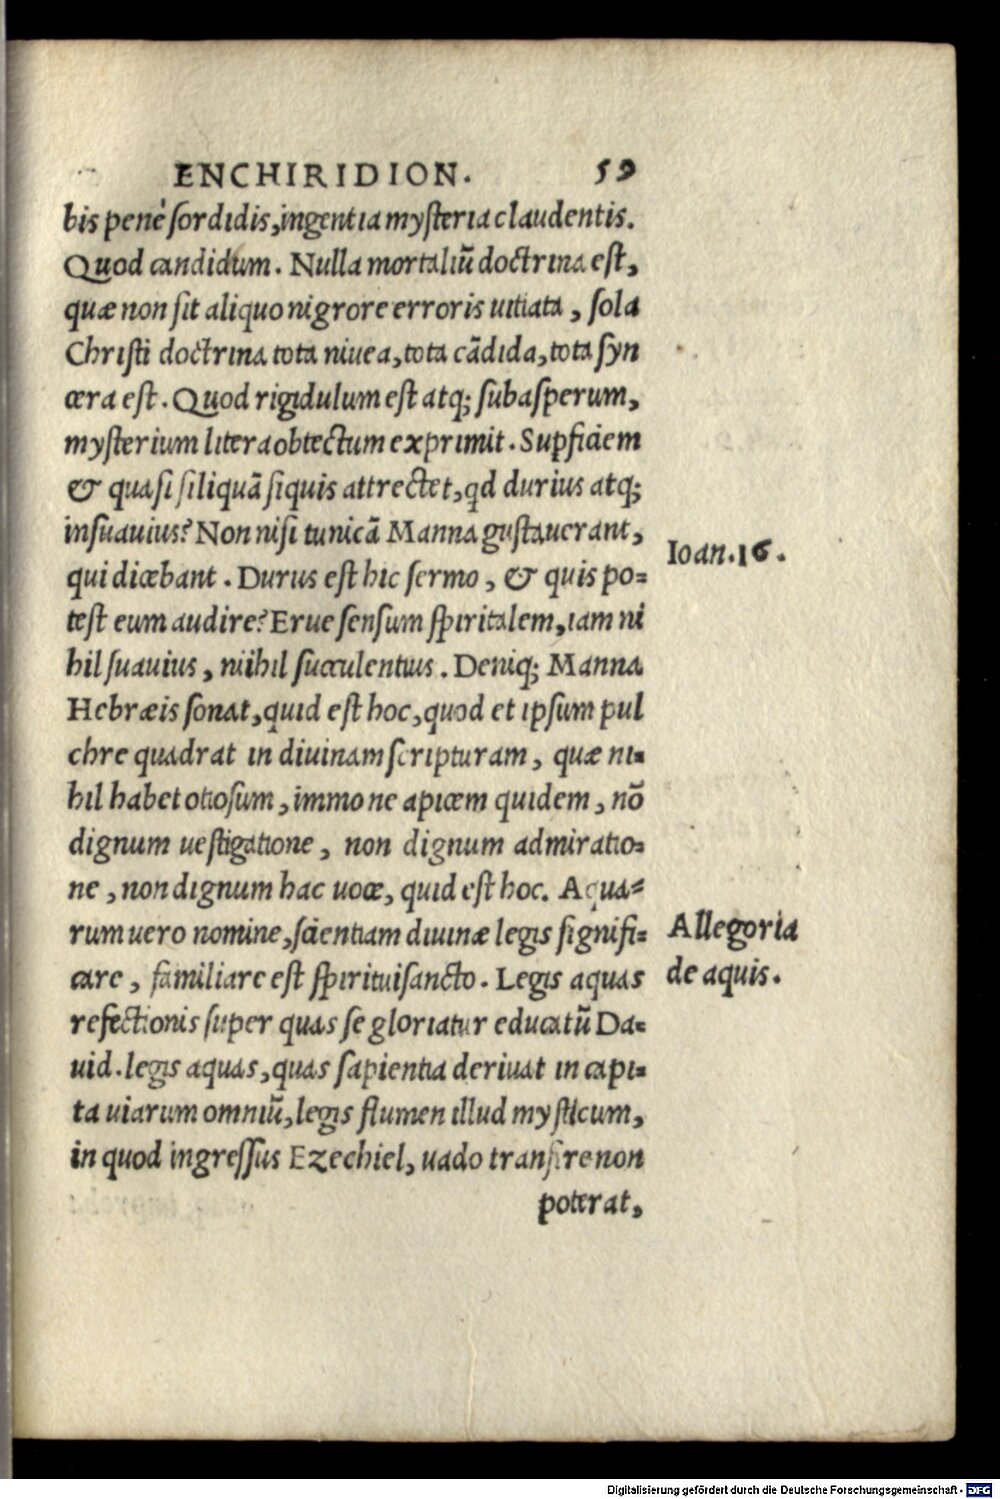 ENCHIRIDION. 59
bis penè sordidis, ingentia mysteria claudentis.
Quod candidum. Nulla mortaliũ doctrina est,
quæ non sit aliquo nigrore erroris uitiata, sola
Christi doctrina tota niuea, tota cãdida, tota syn
cera est. Quod rigidulum est atq; subasperum,
mysterium litera obtectum exprimit. Supficiem
& quasi siliquã siquis attrectet, qd durius atq;
insuauius? Non nisi tunicã Manna gustauerant,
qui dicebant. Durus est hic sermo, & quis po=
test eum audire? Erue sensum spiritalem, iam ni
hil suauius, niihil succulentius. Deniq; Manna
Hebræis sonat, quid est hoc, quod et ipsum pul
chre quadrat in diuinam scripturam, quæ ni=
hil habet otiosum, immo ne apicem quidem, nõ
dignum uestigatione, non dignum admiratio=
ne, non dignum hac uoce, quid est hoc. Aqua=
rum uero nomine, scientiam diuinæ legis signifi=
care, familiare est spirituisancto. Legis aquas
refectionis super quas se gloriatur educatũ Da=
uid. legis aquas, quas sapientia deriuat in capi=
ta uiarum omniũ, legis flumen illud mysticum,
in quod ingressus Ezechiel, uado transire non
poterat,
Ioan. 16.
Allegoria
de aquis.
Digitalisierung gefördert durch die Deutsche Forschungsgemeinschaft - DFG